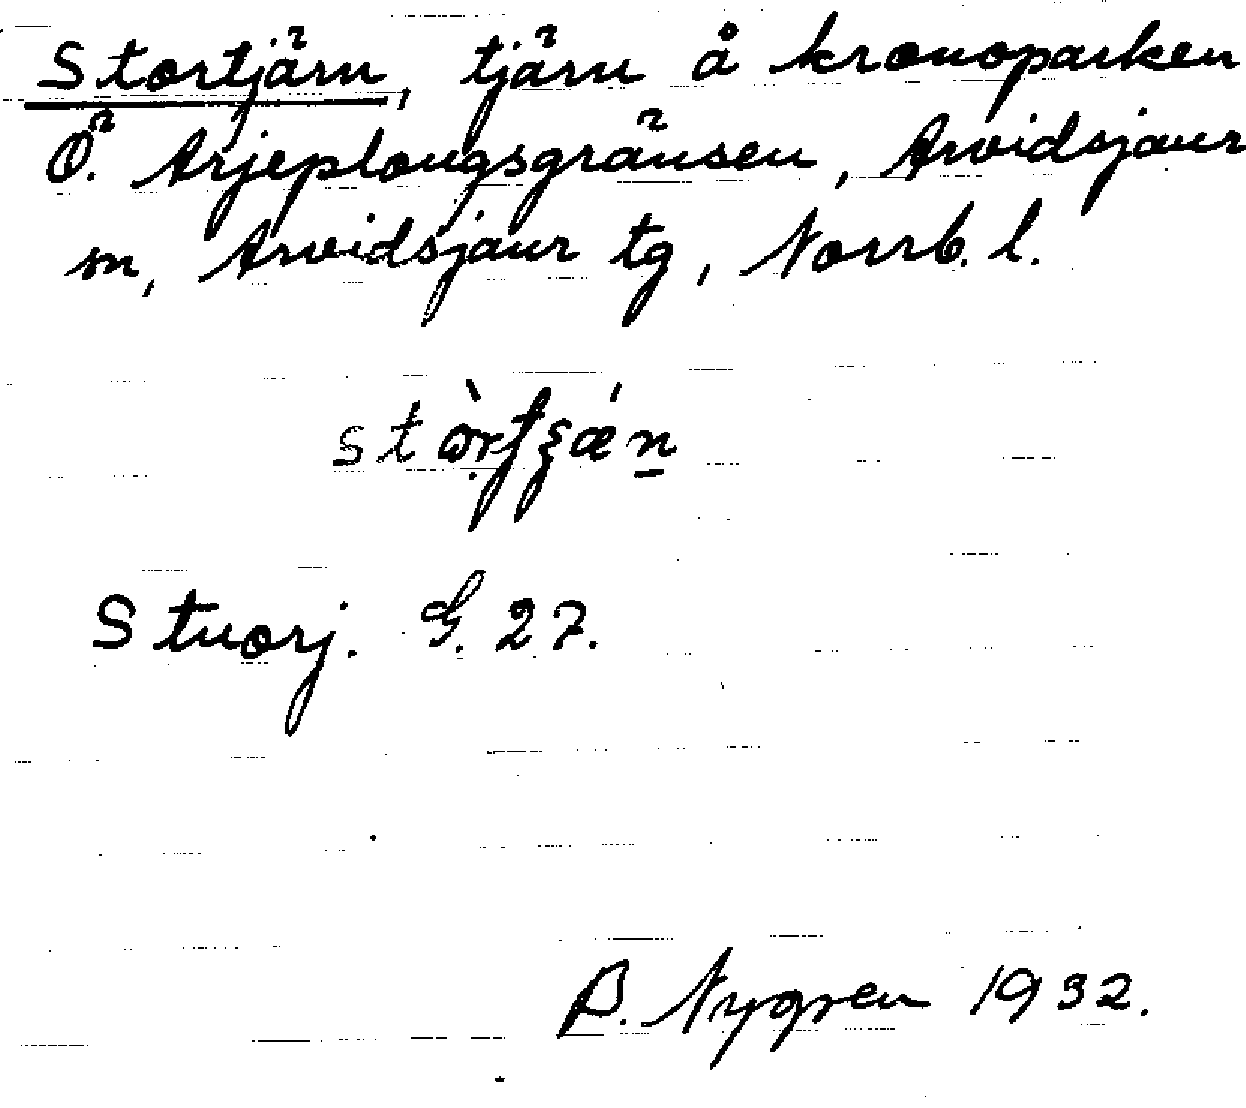 Stortjärn, tjärn å kronoparken
Ö. Arjeplougsgränsen, Arvidsjaur
sn, Arvidsjaur tg, Norrb. l.
Stuorj. G. 27.
B. Nygren 1932.